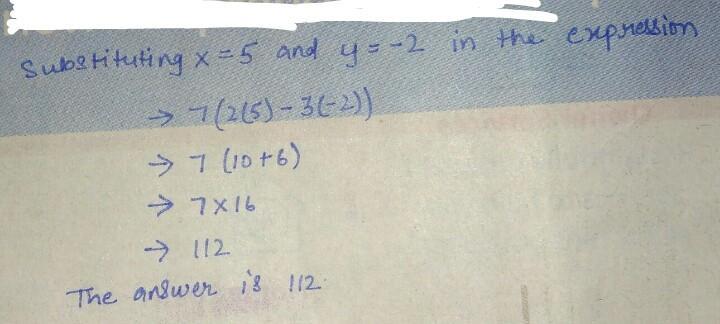 Substituting x = 5 and y = -2 in the expression
→ 7(2(5) - 3(-2))
→ 7 (10 + 6)
→ 7 x 16
→ 112
The answer is 112.